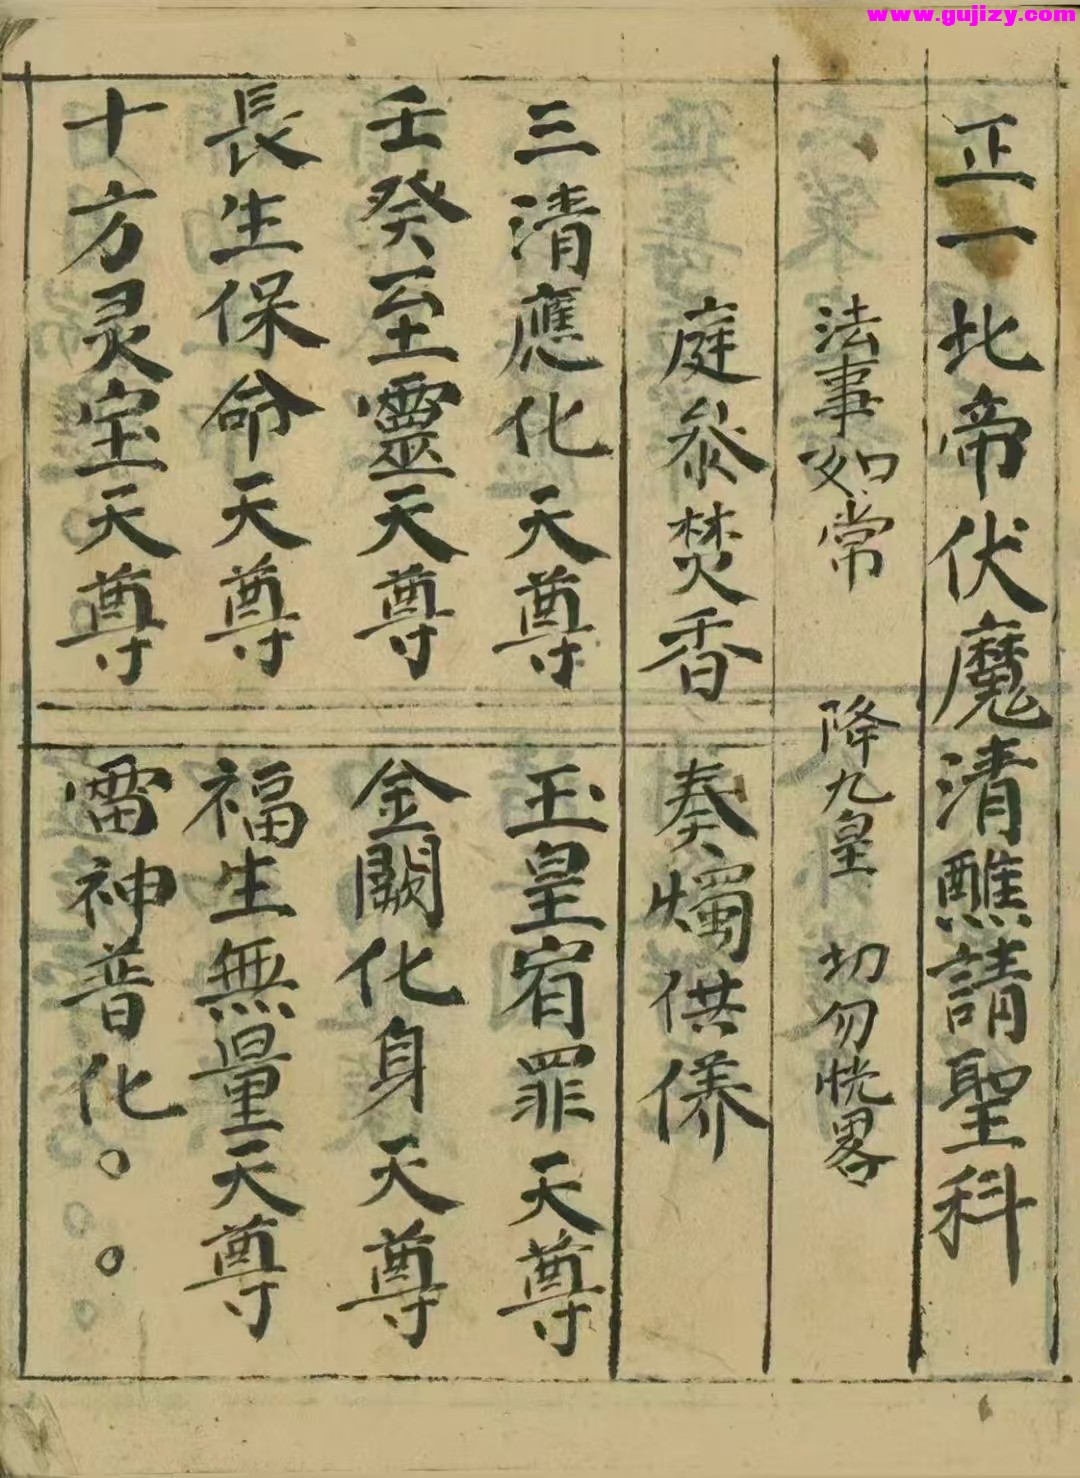 www.gujizy.com
正一北帝伏魔清醮請聖科
法事如常 降九皇 切勿恍畧
庭參焚香 奏燭供養
三清應化天尊 玉皇宥罪天尊
壬癸至靈天尊 金闕化身天尊
長生保命天尊 福生無量天尊
十方灵宝天尊 雷神普化。。